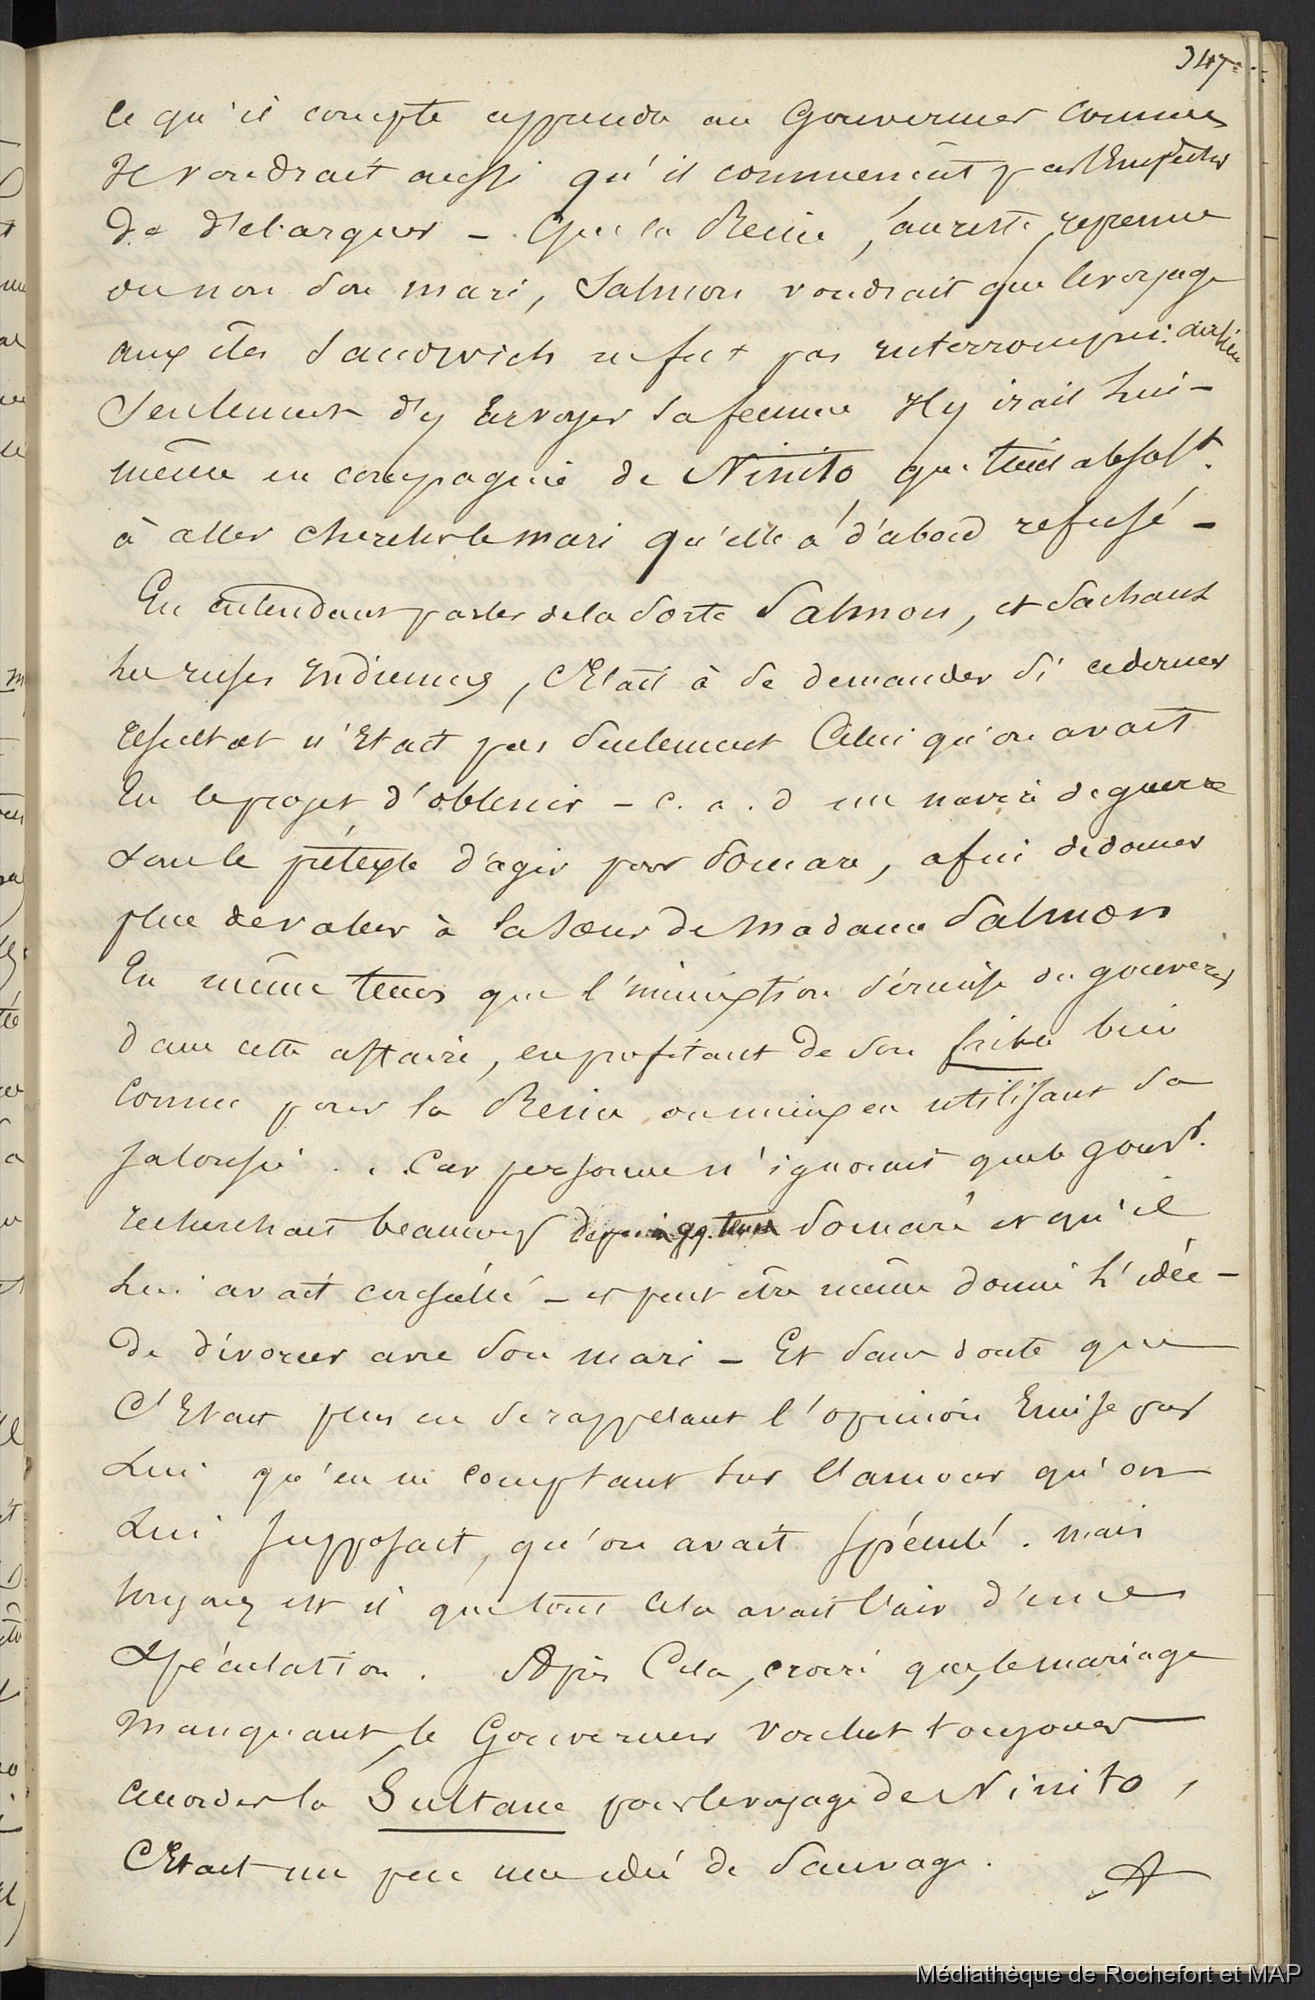 347
ce qu'il compte apprendre au Gouverneur comme
Il voudrait aussi qu'il commencât par l'Empêcher
De débarquer – Que la Reine, au reste, reprenne
ou non son mari, Salmon voudrait que le voyage
aux îles Sandwich ne fut pas interrompu. au lieu
Seulement d'y Envoyer sa femme Il y irait lui-
même en compagnie de Ninito qui tient absolt.
à aller chercher le mari qu'elle a d'abord refusé –
En entendant parler de la sorte Salmon, et sachant
les ruses Indiennes, c'Etait à se demander si ce dernier
résultat n'Etait pas seulement Celui qu'on avait
Eu le projet d'obtenir – c. a. d un navire de guerre
sous le prétexte d'agir pour Pomare, afin de donner
plus de valeur à la Soeur de Madame Salmon
En même tems que l'immixtion sérieuse du gouverneur
dans cette affaire, en profitant de son bien
connu pour la Reine ou mieux en utilisant sa
jalousie . . . Car personne n'ignorait que le gouvr.
recherchait beaucoup depuis qq. tems Pomaré et qu'il
lui avait conseillé – et peut être même donné l'idée –
De divorcer avec son mari – Et sans doute que
C'Etait plus en se rappelant l'opinion Emise par
Lui qu'en ne comptant sur l'amour qu'on
Lui supposait, qu'on avait spéculé. mais
toujours est il que tout cela avait l'air d'une
spéculation. Après Cela, croire que, le mariage
manquant, le Gouverneur voulut toujours
accorder la Sultane pour le voyage de Ninito,
C'Etait un peu une idée de Sauvage.
Médiathèque de Rochefort et MAP